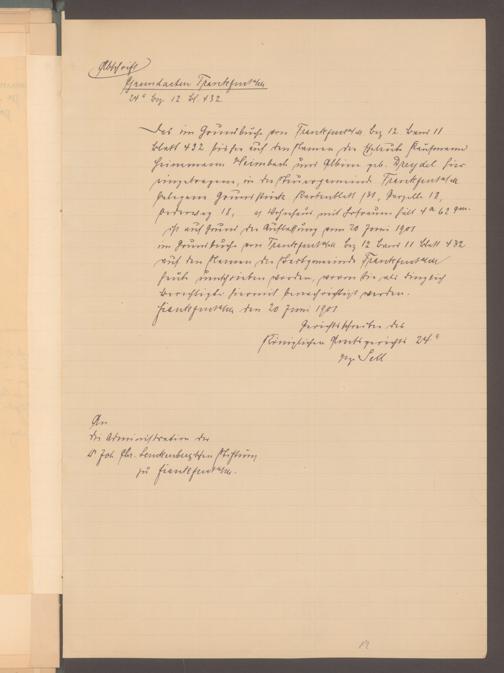 Abschrift
Grundacten Frankfurt a/M
24ª Bez 12 Bl. 432.
Das im Grundbuche von Frankfurt a/M Bez 12 Band 11
Blatt 432 bisher auf den Namen der Eheleute Kaufmann
Heimbach und Albine geb. Dreydel hier
eingetragene, in der Steuergemeinde Frankfurt a/M
belegene Grundstück Kartenblatt 131, Parzelle 18,
Oederweg 18, a) Wohnhaus mit Hofraum hält 4 a 62 qm.
ist auf Grund der Auflassung vom 20 Juni 1901
im Grundbuche von Frankfurt a/M Bez 12 Band 11 Blatt 432
auf den Namen der Stadtgemeinde Frankfurt a/M
heute umschrieben worden, wovon Sie als dinglich
Berechtigte hiermit benachrichtigt werden.
Frankfurt a/M. den 20 Juni 1901
Gerichtsschreiber des
Königlichen Amtsgerichts 24ª
gez. Sell
An
die Administration der
Dr Joh. Chr. Senckenbergischen Stiftung
zu Frankfurt a/M.